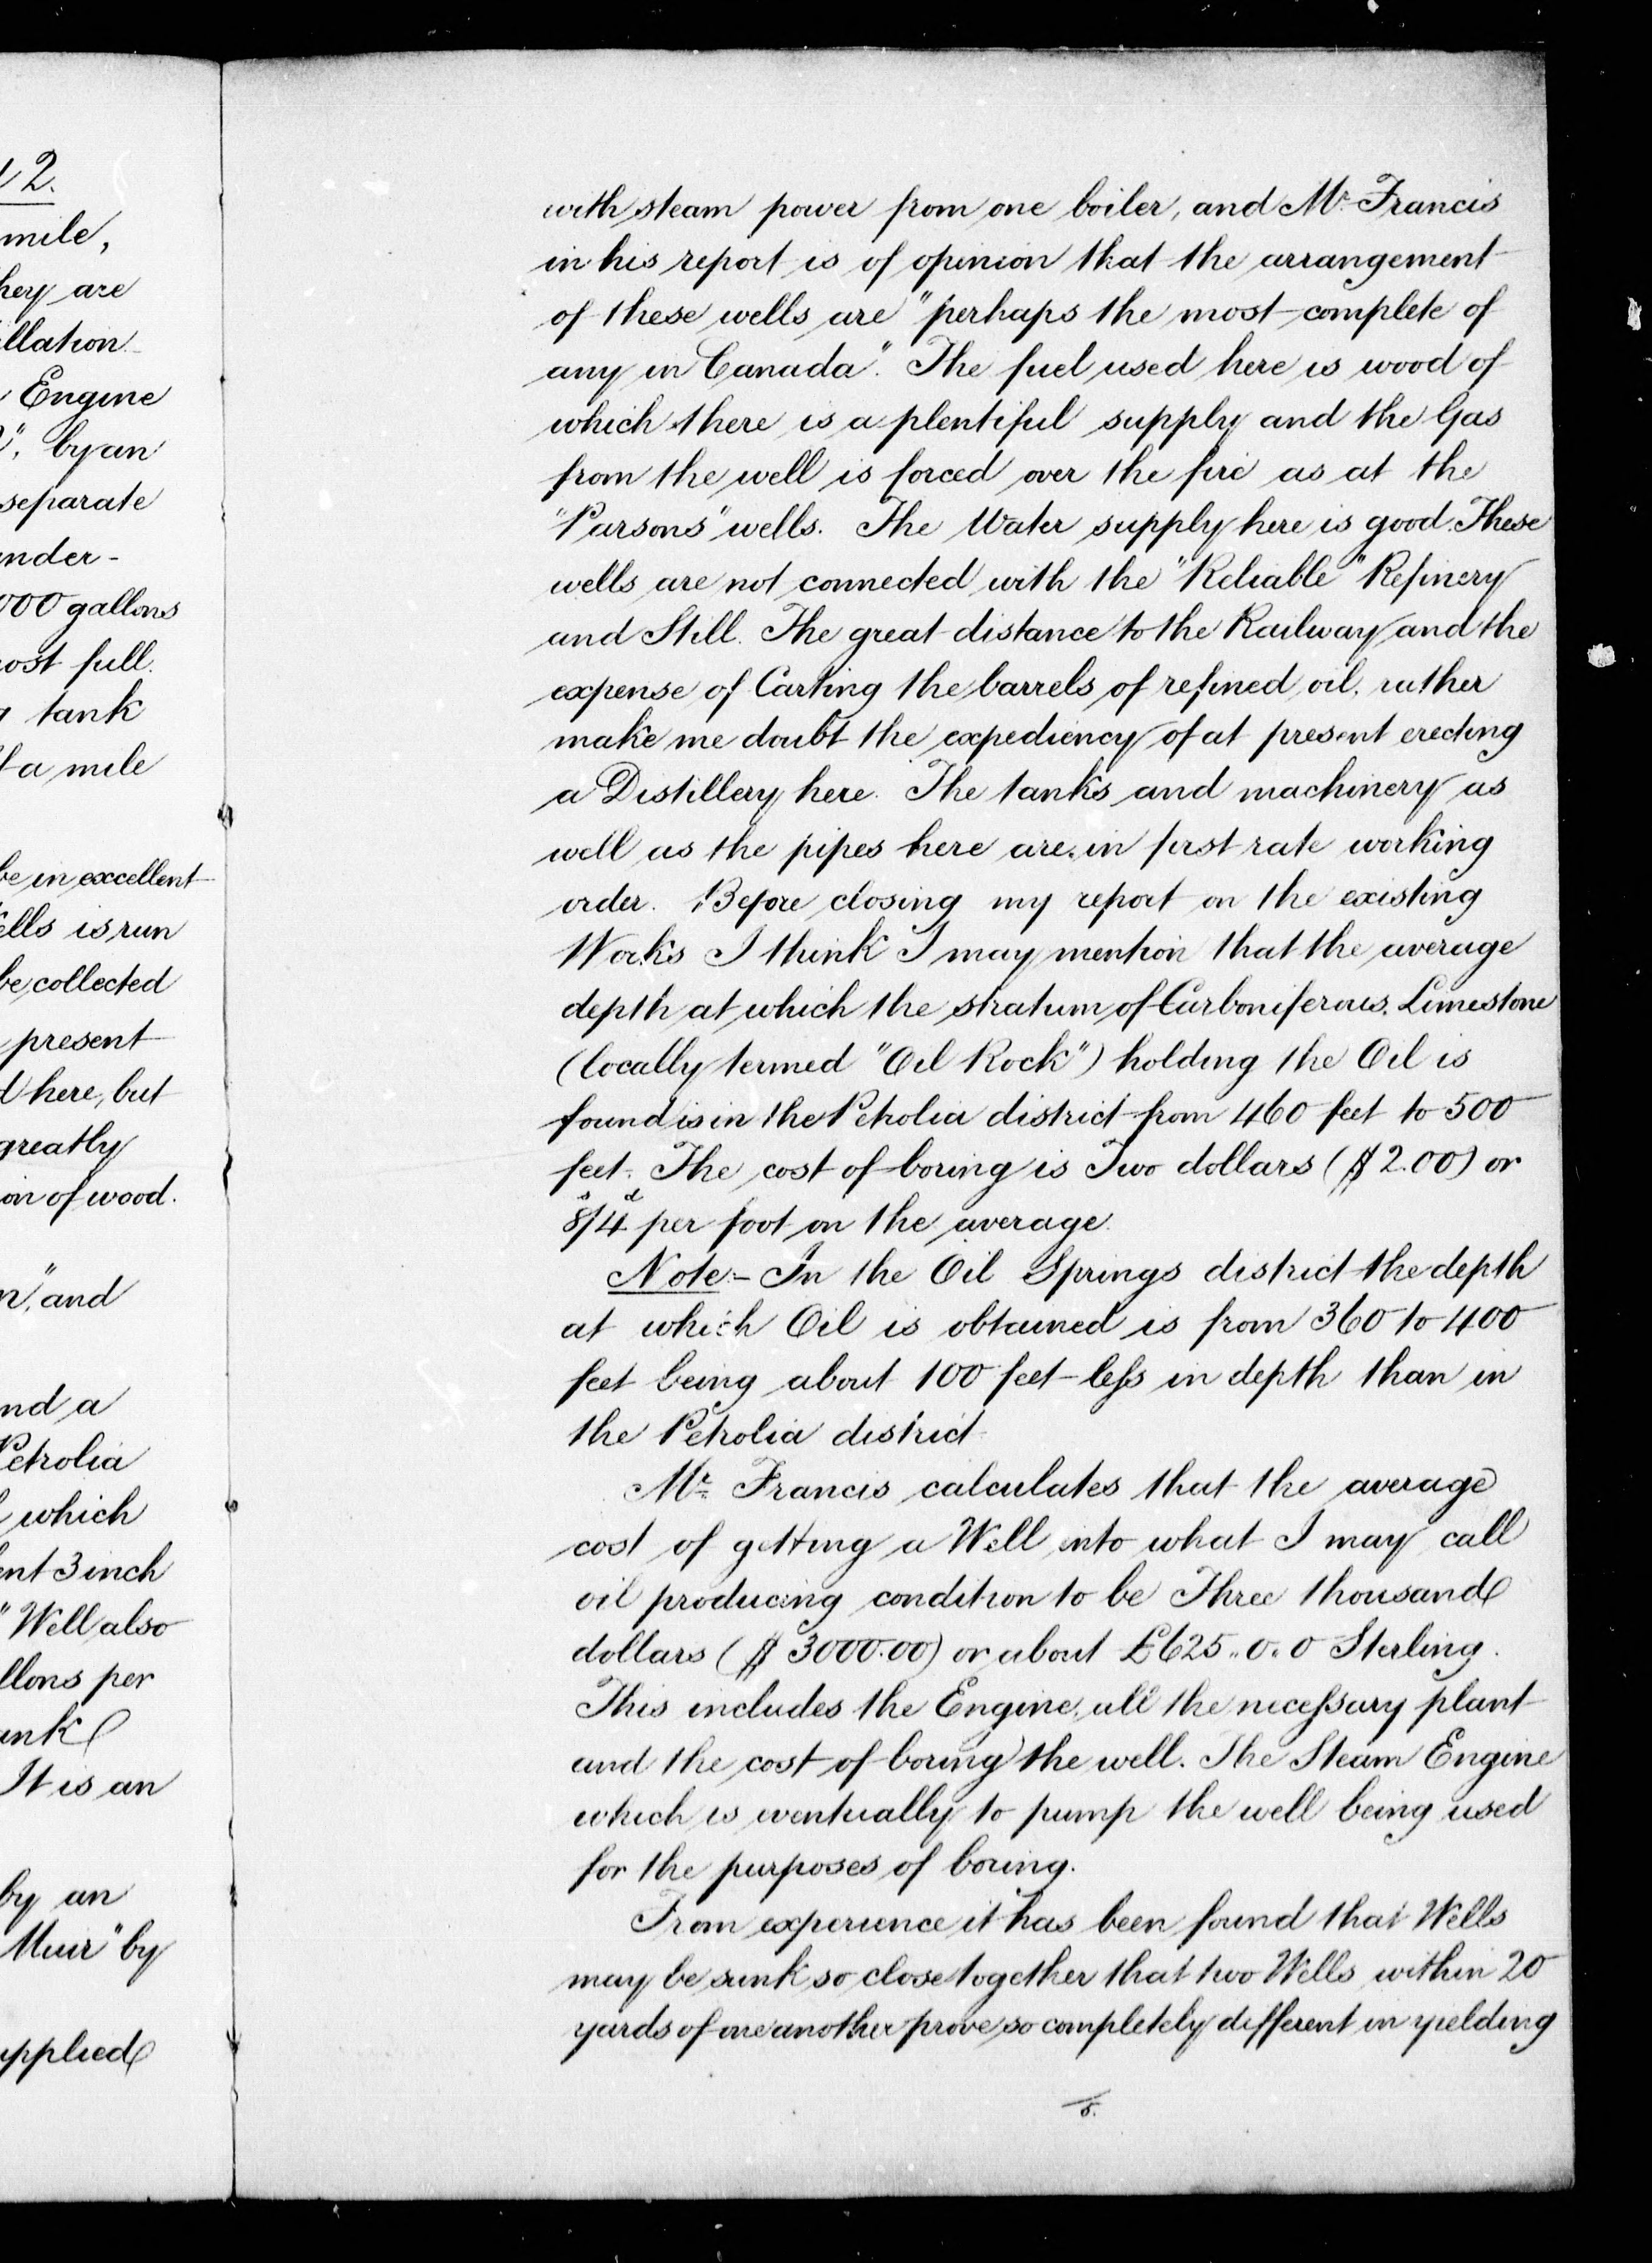 d 2.
mile,
hey are
illation
Engine
", by an
separate
under-
000 gallons
most full.
tank
f a mile
be in excellent
ells is run
be collected
present
d here, but
greatly
on of wood.
n", and
nd a
Petrolia
which
ent 3 inch
" Well also
llons per
ank
It is an
by an
Muir" by
upplied
with steam power from one boiler, and Mr. Francis
in his report is of opinion that the arrangement
of these wells are "perhaps the most complete of
any in Canada". The fuel used here is wood of
which there is a plentiful supply and the Gas
from the well is forced over the fire as at the
"Parsons" wells. The Water supply here is good. These
wells are not connected with the "Reliable" Refinery
and Still. The great distance to the Railway and the
expense of Carting the barrels of refined oil, rather
make me doubt the expediency of at present erecting
a Distillery here. The tanks and machinery as
well as the pipes here are in first rate working
order. Before closing my report on the existing
Works I think I may mention that the average
depth at which the stratum of Carboniferous Limestone
(locally termed "Oil Rock") holding the Oil is
found is in the Petrolia district from 460 feet to 500
feet. The cost of boring is Two dollars ($2.00) or
8s/4d per foot on the average.
Note:- In the Oil Springs district the depth
at which Oil is obtained is from 360 to 400
feet being about 100 feet less in depth than in
the Petrolia district
Mr. Francis calculates that the average
cost of getting a Well into what I may call
oil producing condition to be Three thousand
dollars ($3000.00) or about £625..0..0 Sterling.
This includes the Engine, all the necessary plant
and the cost of boring the well. The Steam Engine
which is eventually to pump the well being used
for the purposes of boring.
From experience it has been found that Wells
may be sunk so close together that two Wells within 20
yards of one another prove so completely different in yielding
5.